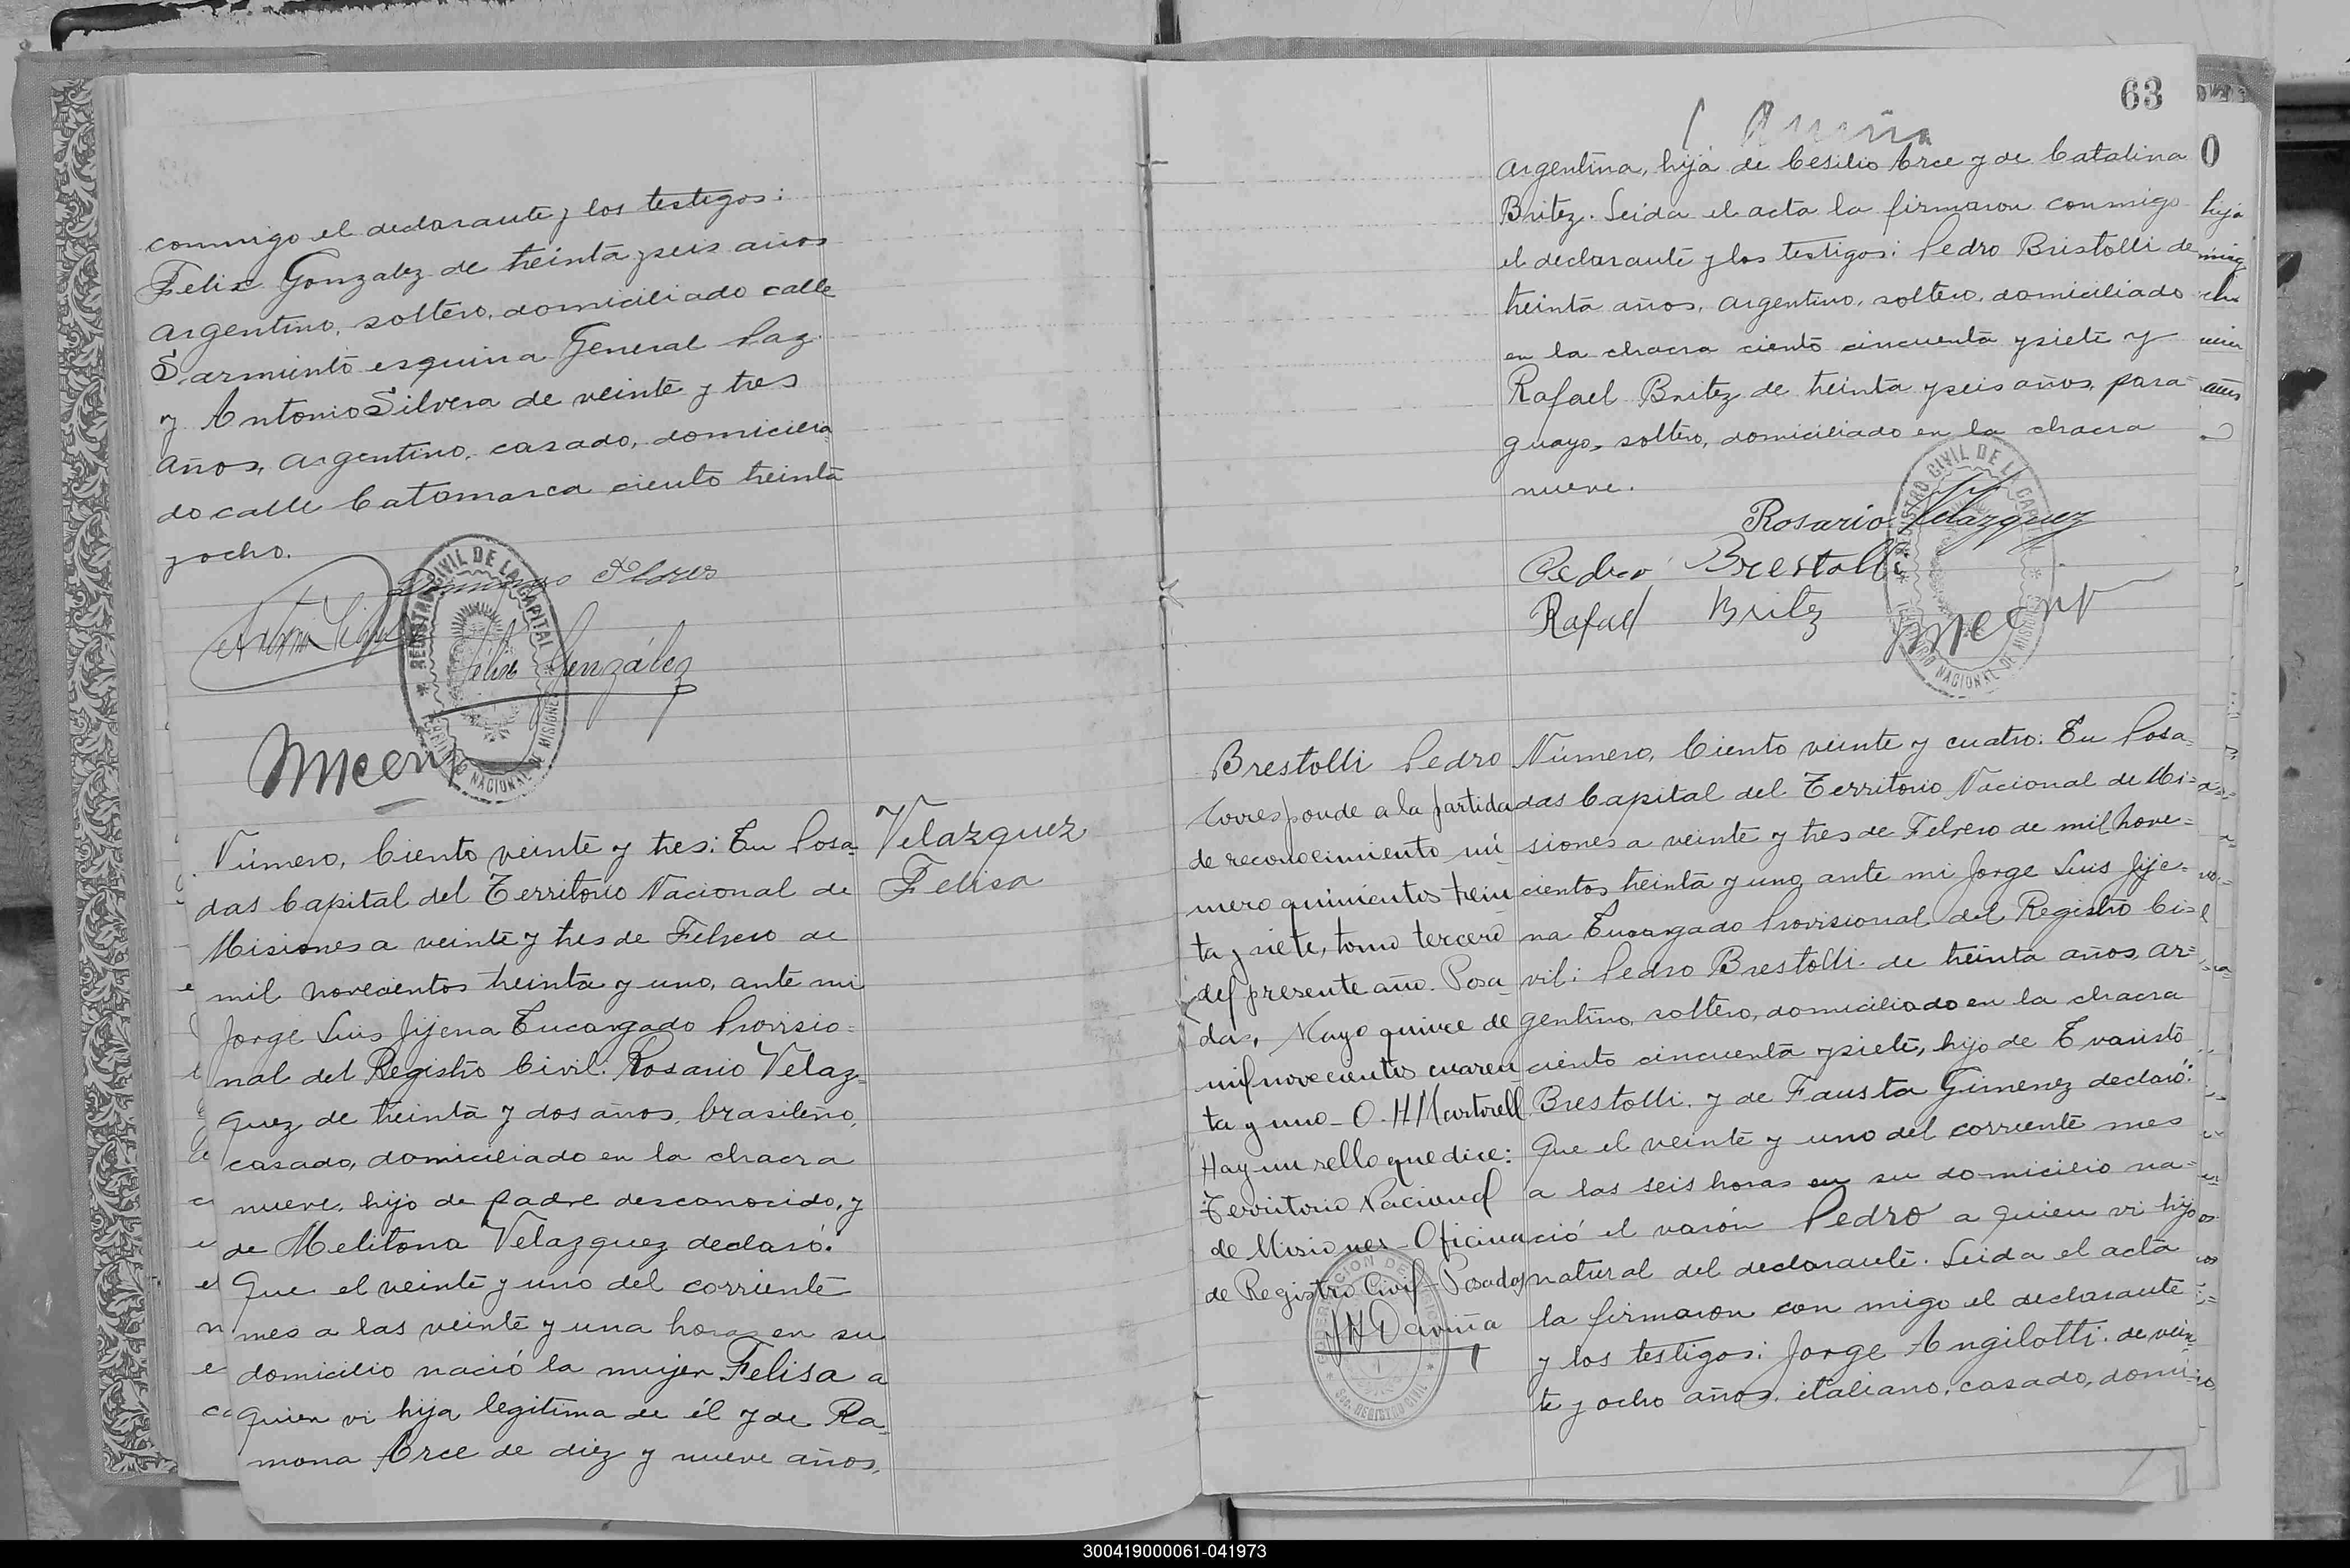 conmigo el declarante y los testigos:
Felix Gonzalez de treinta y seis años
argentino, soltero, domiciliado calle
Sarmiento esquina General Paz
y Antonio Silvera de veinte y tres
años, argentino, casado, domicilia
do calle Catamarca ciento treinta
y ocho.
Domingo Flores
Félix González
REGISTRO CIVIL DE LA CAPITAL
TERRITORIO NACIONAL DE MISIONES
Número, Ciento veinte y tres: En Posa-
das Capital del Territorio Nacional de
Misiones a veinte y tres de Febrero de
mil novecientos treinta y uno, ante mi
Jorge Luis Jijena Encargado Provisio=
nal del Registro Civil: Rosario Velaz=
quez de treinta y dos años, brasileno,
casado, domiciliado en la chacra
nueve, hijo de padre desconocido, y
de Melitona Velazquez declaró:
Que el veinte y uno del corriente
mes a las veinte y una horas en su
domicilio nació la mujer Felisa a
quien vi hija legitima de él y de Ra=
mona Arce de diez y nueve años,
Velazquez
Felisa
63
argentina, hija de Cesilio Arce y de Catalina
Britez. Leida el acta la firmaron conmigo
el declarante y los testigos: Pedro Bristolli de
treinta años, argentino, soltero, domiciliado
en la chacra ciento cincuenta y siete y
Rafael Britez de treinta y seis años, para=
guayo, soltero, domiciliado en la chacra
nueve.
Rosario Velazquez
Pedro Brestolli
Rafael Britez
REGISTRO CIVIL DE LA CAPITAL
TERRITORIO NACIONAL DE MISIONES
Brestolli Pedro
Corresponde a la partida
de reconocimiento nú
mero quinientos trein
ta y siete, tomo tercero
del presente año. Posa-
das, Mayo quince de
mil novecientos cuaren
ta y uno - O. H. Martorell
Hay un sello que dice:
Territorio Nacional
de Misiones - Oficina
de Registro Civil - Posadas
Número, Ciento veinte y cuatro: En Posa=
das Capital del Territorio Nacional de Mi=
siones a veinte y tres de Febrero de mil nove=
cientos treinta y uno, ante mi Jorge Luis Jije=
na Encargado Provisional del Registro Ci=
vil: Pedro Brestolli de treinta años, ar=
gentino, soltero, domiciliado en la chacra
ciento cincuenta y siete, hijo de Evaristo
Brestolli y de Fausta Gimenez declaró:
Que el veinte y uno del corriente mes
a las seis horas en su domicilio na=
ció el varón Pedro a quien vi hijo
natural del declarante. Leida el acta
la firmaron con migo el declarante
y los testigos: Jorge Angilotti de vein
te y ocho años, italiano, casado, domi-
300419000061-041973